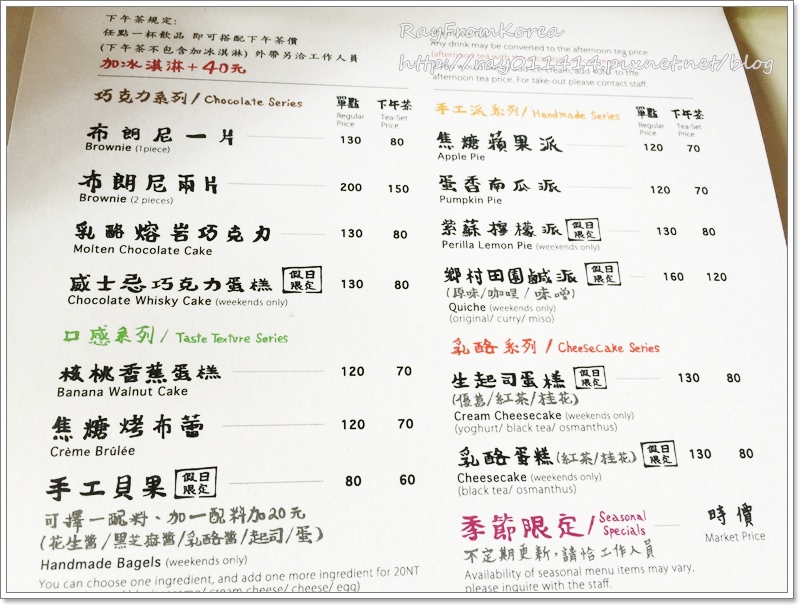 下午茶規定:
任點一杯飲品 即可搭配下午茶價
(下午茶不包含加冰淇淋) 外帶另洽工作人員
加冰淇淋+40元
RayFromKorea
Any drink may be converted to the afternoon tea price
http://ray011414.pixnet.net/blog
afternoon tea price. For take-out please contact staff.
巧克力系列/Chocolate Series 單點 下午茶
Regular Price Tea-Set Price
布朗尼一片 130 80
Brownie (1piece)
布朗尼兩片 200 150
Brownie (2 pieces)
乳酪熔岩巧克力 130 80
Molten Chocolate Cake
威士忌巧克力蛋糕 假日限定 130 80
Chocolate Whisky Cake (weekends only)
口感系列/Taste Texture Series
核桃香蕉蛋糕 120 70
Banana Walnut Cake
焦糖烤布蕾 120 70
Crème Brûlée
手工貝果 假日限定 80 60
可擇一配料、加一配料加20元
(花生醬/黑芝麻醬/乳酪醬/起司/蛋)
Handmade Bagels (weekends only)
You can choose one ingredient, and add one more ingredient for 20NT
cream cheese/ cheese/ egg)
手工派系列/Handmade Series 單點 下午茶
Regular Price Tea-Set Price
焦糖蘋果派 120 70
Apple Pie
蛋香南瓜派 120 70
Pumpkin Pie
紫蘇檸檬派 假日限定 130 80
Perilla Lemon Pie (weekends only)
鄉村田園鹹派 假日限定 160 120
(原味/咖哩/味噌)
Quiche (weekends only)
(original/ curry/ miso)
乳酪系列/Cheesecake Series
生起司蛋糕 假日限定 130 80
(優菖/紅茶/桂花)
Cream Cheesecake (weekends only)
(yoghurt/ black tea/ osmanthus)
乳酪蛋糕(紅茶/桂花) 假日限定 130 80
Cheesecake (weekends only)
(black tea/ osmanthus)
季節限定/Seasonal Specials 時價
Market Price
不定期更新,請恰工作人員
Availability of seasonal menu items may vary,
please inquire with the staff.